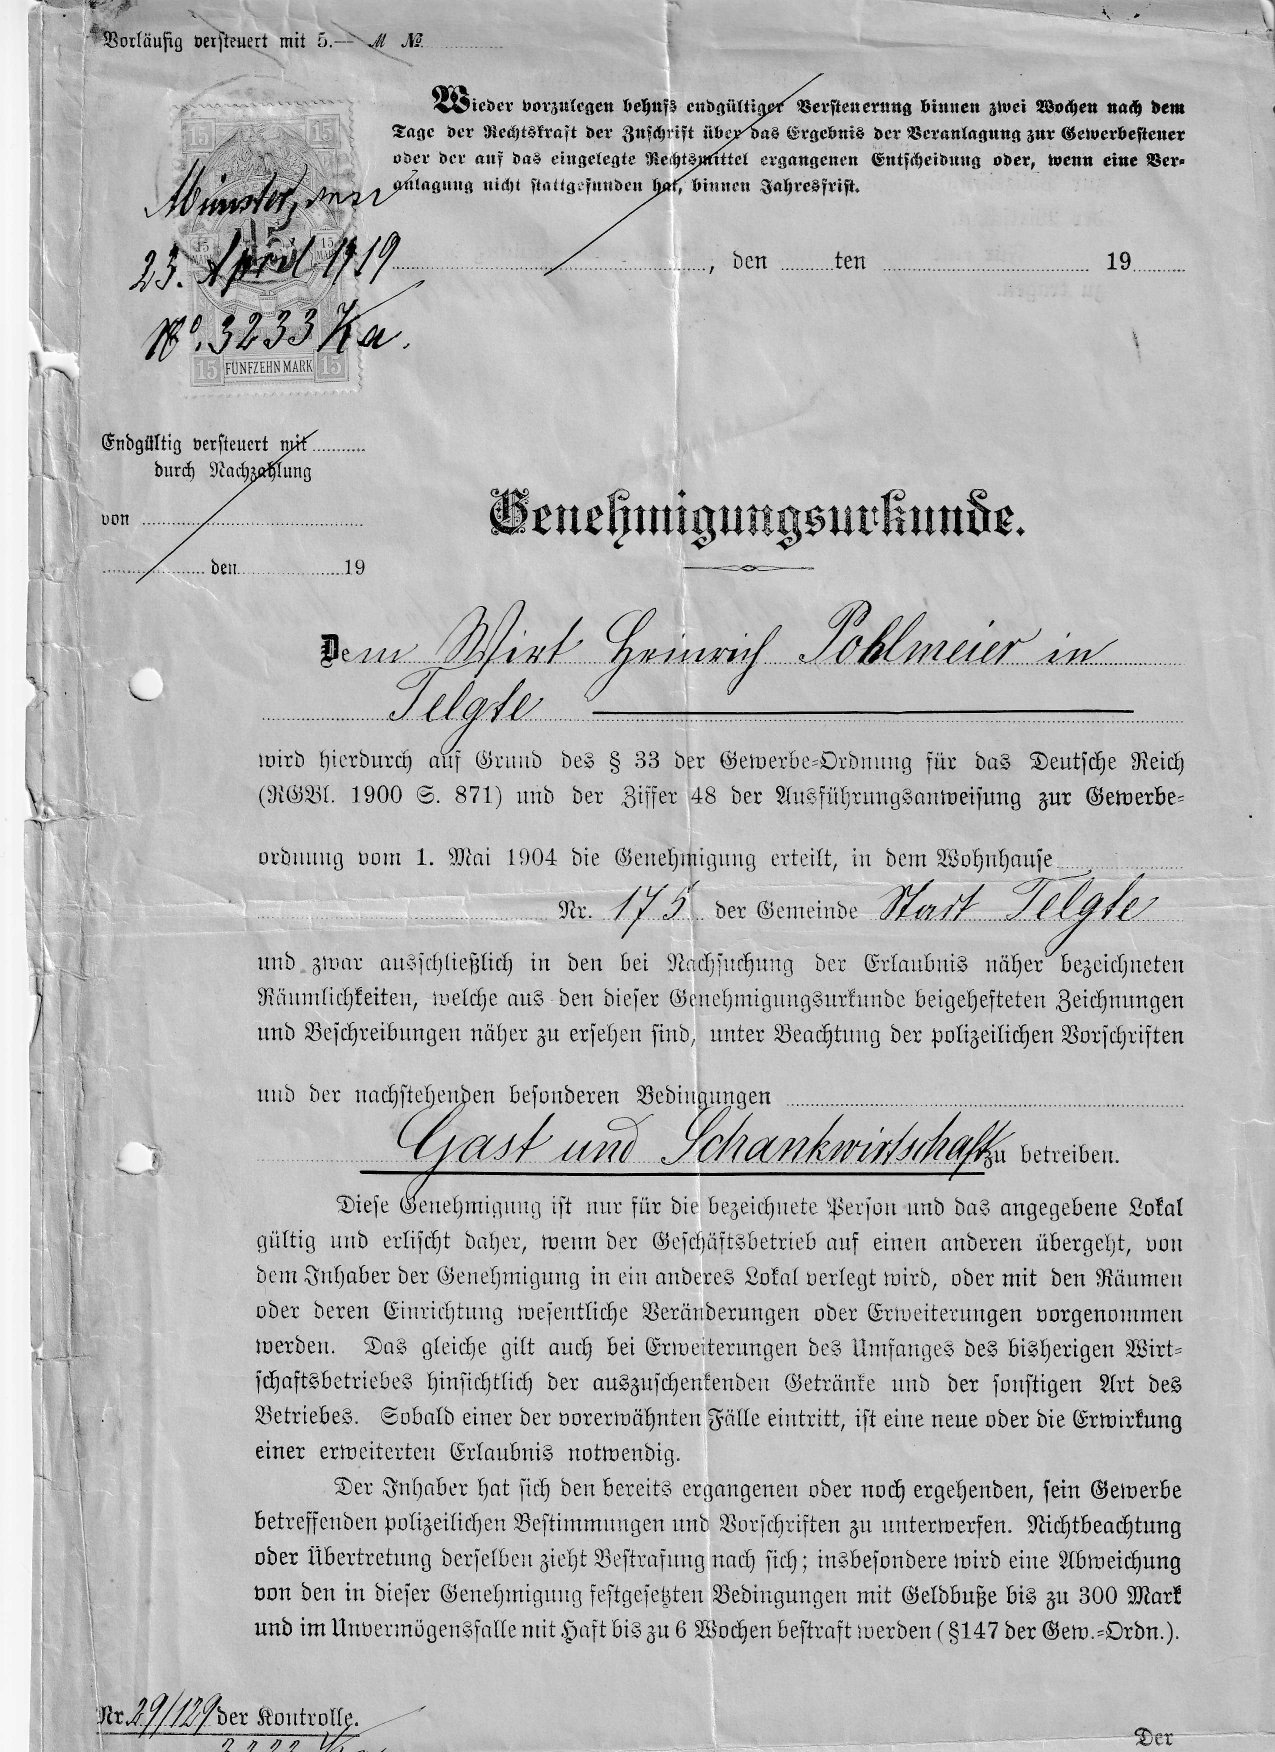 Vorläufig versteuert mit 5.— M №
Wieder vorzulegen behufs endgültiger Versteuerung binnen zwei Wochen nach dem
Tage der Rechtskraft der Zuschrift über das Ergebnis der Veranlagung zur Gewerbesteuer
oder der auf das eingelegte Rechtsmittel ergangenen Entscheidung oder, wenn eine Ver-
anlagung nicht stattgefunden hat, binnen Jahresfrist.
15 15
Münster, den
15
15 MARK 15 MARK
23. April 1919
, den ten 19
No. 3233 Ka.
15 FÜNFZEHN MARK 15
Endgültig versteuert mit
durch Nachzahlung
von
den 19
Genehmigungsurkunde.
Dem Wirt Heinrich Pohlmeier in
Telgte
wird hierdurch auf Grund des § 33 der Gewerbe-Ordnung für das Deutsche Reich
(RGBl. 1900 S. 871) und der Ziffer 48 der Ausführungsanweisung zur Gewerbe-
ordnung vom 1. Mai 1904 die Genehmigung erteilt, in dem Wohnhause
Nr. 175 der Gemeinde Stadt Telgte
und zwar ausschließlich in den bei Nachsuchung der Erlaubnis näher bezeichneten
Räumlichkeiten, welche aus den dieser Genehmigungsurkunde beigehefteten Zeichnungen
und Beschreibungen näher zu ersehen sind, unter Beachtung der polizeilichen Vorschriften
und der nachstehenden besonderen Bedingungen
Gast und Schankwirtschaft zu betreiben.
Diese Genehmigung ist nur für die bezeichnete Person und das angegebene Lokal
gültig und erlischt daher, wenn der Geschäftsbetrieb auf einen anderen übergeht, von
dem Inhaber der Genehmigung in ein anderes Lokal verlegt wird, oder mit den Räumen
oder deren Einrichtung wesentliche Veränderungen oder Erweiterungen vorgenommen
werden. Das gleiche gilt auch bei Erweiterungen des Umfanges des bisherigen Wirt-
schaftsbetriebes hinsichtlich der auszuschenkenden Getränke und der sonstigen Art des
Betriebes. Sobald einer der vorerwähnten Fälle eintritt, ist eine neue oder die Erwirkung
einer erweiterten Erlaubnis notwendig.
Der Inhaber hat sich den bereits ergangenen oder noch ergehenden, sein Gewerbe
betreffenden polizeilichen Bestimmungen und Vorschriften zu unterwerfen. Nichtbeachtung
oder Übertretung derselben zieht Bestrafung nach sich; insbesondere wird eine Abweichung
von den in dieser Genehmigung festgesetzten Bedingungen mit Geldbuße bis zu 300 Mark
und im Unvermögensfalle mit Haft bis zu 6 Wochen bestraft werden (§ 147 der Gew.-Ordn.).
Nr. 29/129 der Kontrolle.
Der